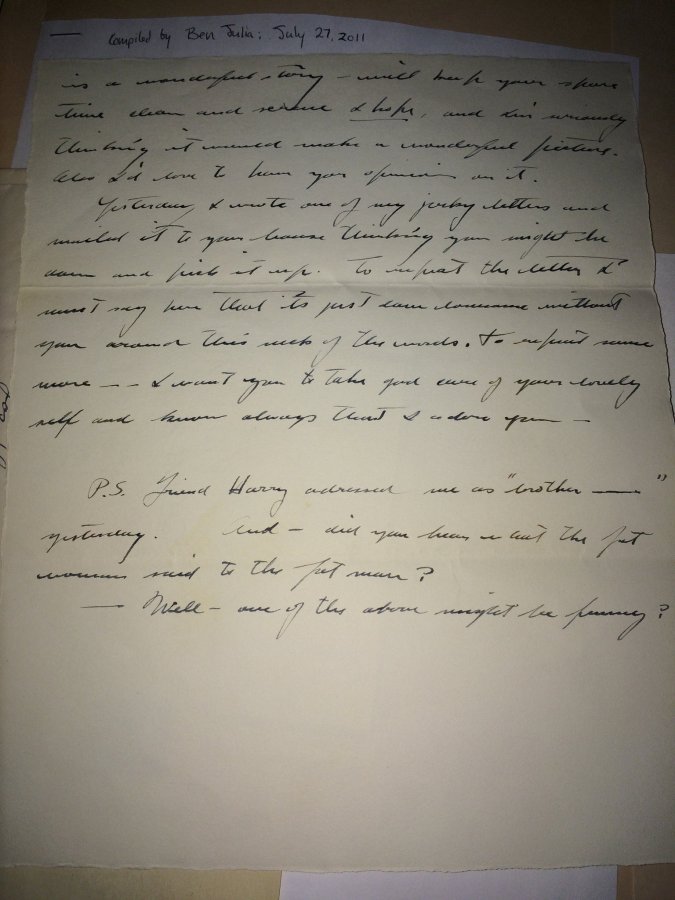 Compiled by Ben Julia: July 27, 2011
is a wonderful story – will keep your spare
time clean and serene I hope, and I'm seriously
thinking it would make a wonderful picture.
Also I'd love to have your opinion on it.
Yesterday, I wrote one of my jerky letters and
mailed it to your house thinking you might be
down and pick it up. To repeat the letter I
must say here that it's just darn lonesome without
you around this neck of the woods. To repeat some
more – – I want you to take good care of your lovely
self and know always that I adore you –
P.S. Friend Harry adressed me as "brother ——"
yesterday. And – did you hear what the fat
woman said to the fat man?
— Well – one of the above might be funny?